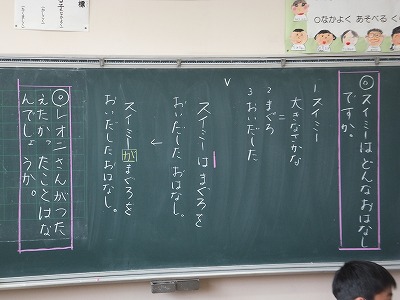 ◎スイミーはどんなおはなし
ですか。
1 スイミー
大きなさかな
=
2 まぐろ
3 おいだした
スイミーはまぐろを
おいだしたおはなし。
↓
スイミーがまぐろを
おいだしたおはなし。
◎レオニさんがつた
えたかったことはな
んでしょうか。
○なかよく あそべる く
様